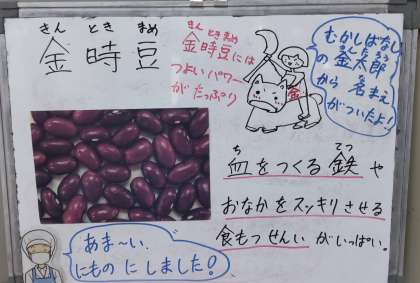 きん とき まめ
金時豆
きん とき まめ
金時豆には
つよいパワー
がたっぷり
むかしばなし
の金太郎
きんたろう
から名まえ
がついたよ!
金
ち てつ
血をつくる鉄や
おなかをスッキリさせる
食もつせんいがいっぱい。
あま〜い、
にものにしました!